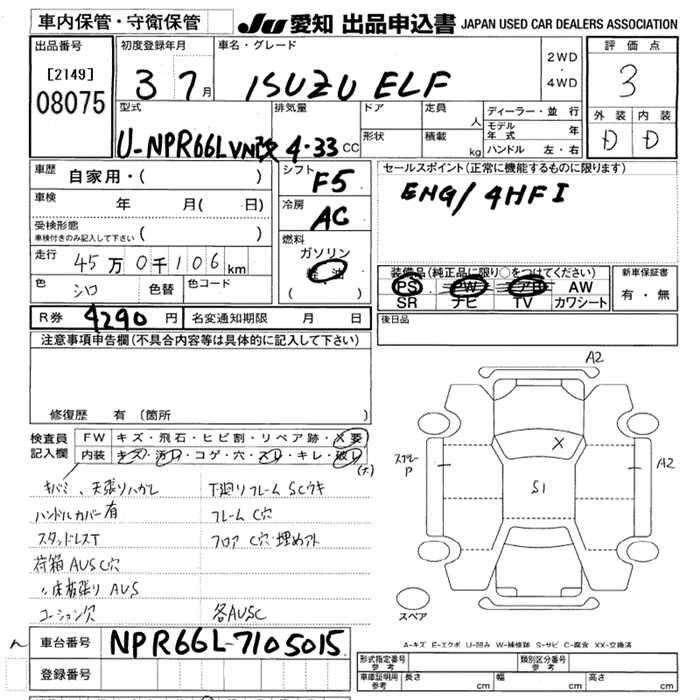 車内保管・守衛保管 JU 愛知 出品申込書 JAPAN USED CAR DEALERS ASSOCIATION
出品番号 初度登録年月 車名・グレード 2WD・4WD 評価点
[2149] 08075 3 7月 ISUZU ELF 3
型式 排気量 ドア 定員 人 ディーラー・並行 外装 内装
U-NPR66LVN改 4.33 CC 形状 積載 kg モデル年式 年 D D
ハンドル 左・右
車歴 自家用・( ) シフト F5 セールスポイント(正常に機能するものに限ります)
車検 年 月( 日) 冷房 AC ENG/4HF1
受検形態 車検付きのみ記入して下さい ( ) 燃料 ガソリン
走行 45万0千106km 軽油 ( )
装備品(純正品に限り○をつけてください) 新車保証書
色 シロ 色替 色コード PS PW AW 有・無
SR ナビ TV カワシート
R券 4290円 名変通知期限 月 日 後日品
注意事項申告欄(不具合内容等は具体的に記入して下さい)
A2
修復歴 有(箇所
検査員記入欄 FW キズ・飛石・ヒビ割・リペア跡・X要
内装 キズ・汚レ・コゲ・穴・スレ・キレ・破レ (大)
X
スプレーP A2
S1
キバミ、天張りハガレ 下廻りフレームSCウキ
ハンドルカバー有 フレームC穴
スタッドレスT フロアC穴・埋めアト
荷箱AUSC穴
〃床板張りAUS
コーション欠 各AUSC
スペア
車台番号 NPR66L-7105015
A-キズ E-エクボ U-凹み W-補修跡 S-サビ C-腐食 XX-交換済
登録番号
形式指定番号 参考 類別区分番号 参考
車庫証明用 参考 長さ cm 幅 cm 高さ cm